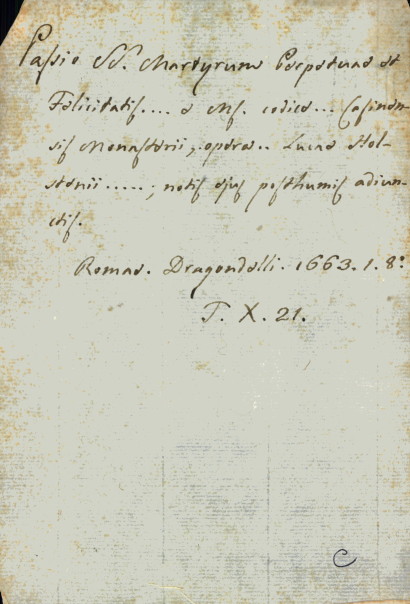 Passio SS. Martyrum Perpetuae et
Felicitatis.... e Ms. codice... Casinen-
sis Monasterii; opera.. Lucae Hol-
stenii.....; notis ejus posthumis adiun-
ctis.
Romae. Dragondelli. 1663. 1. 8°.
T. X. 21.
C